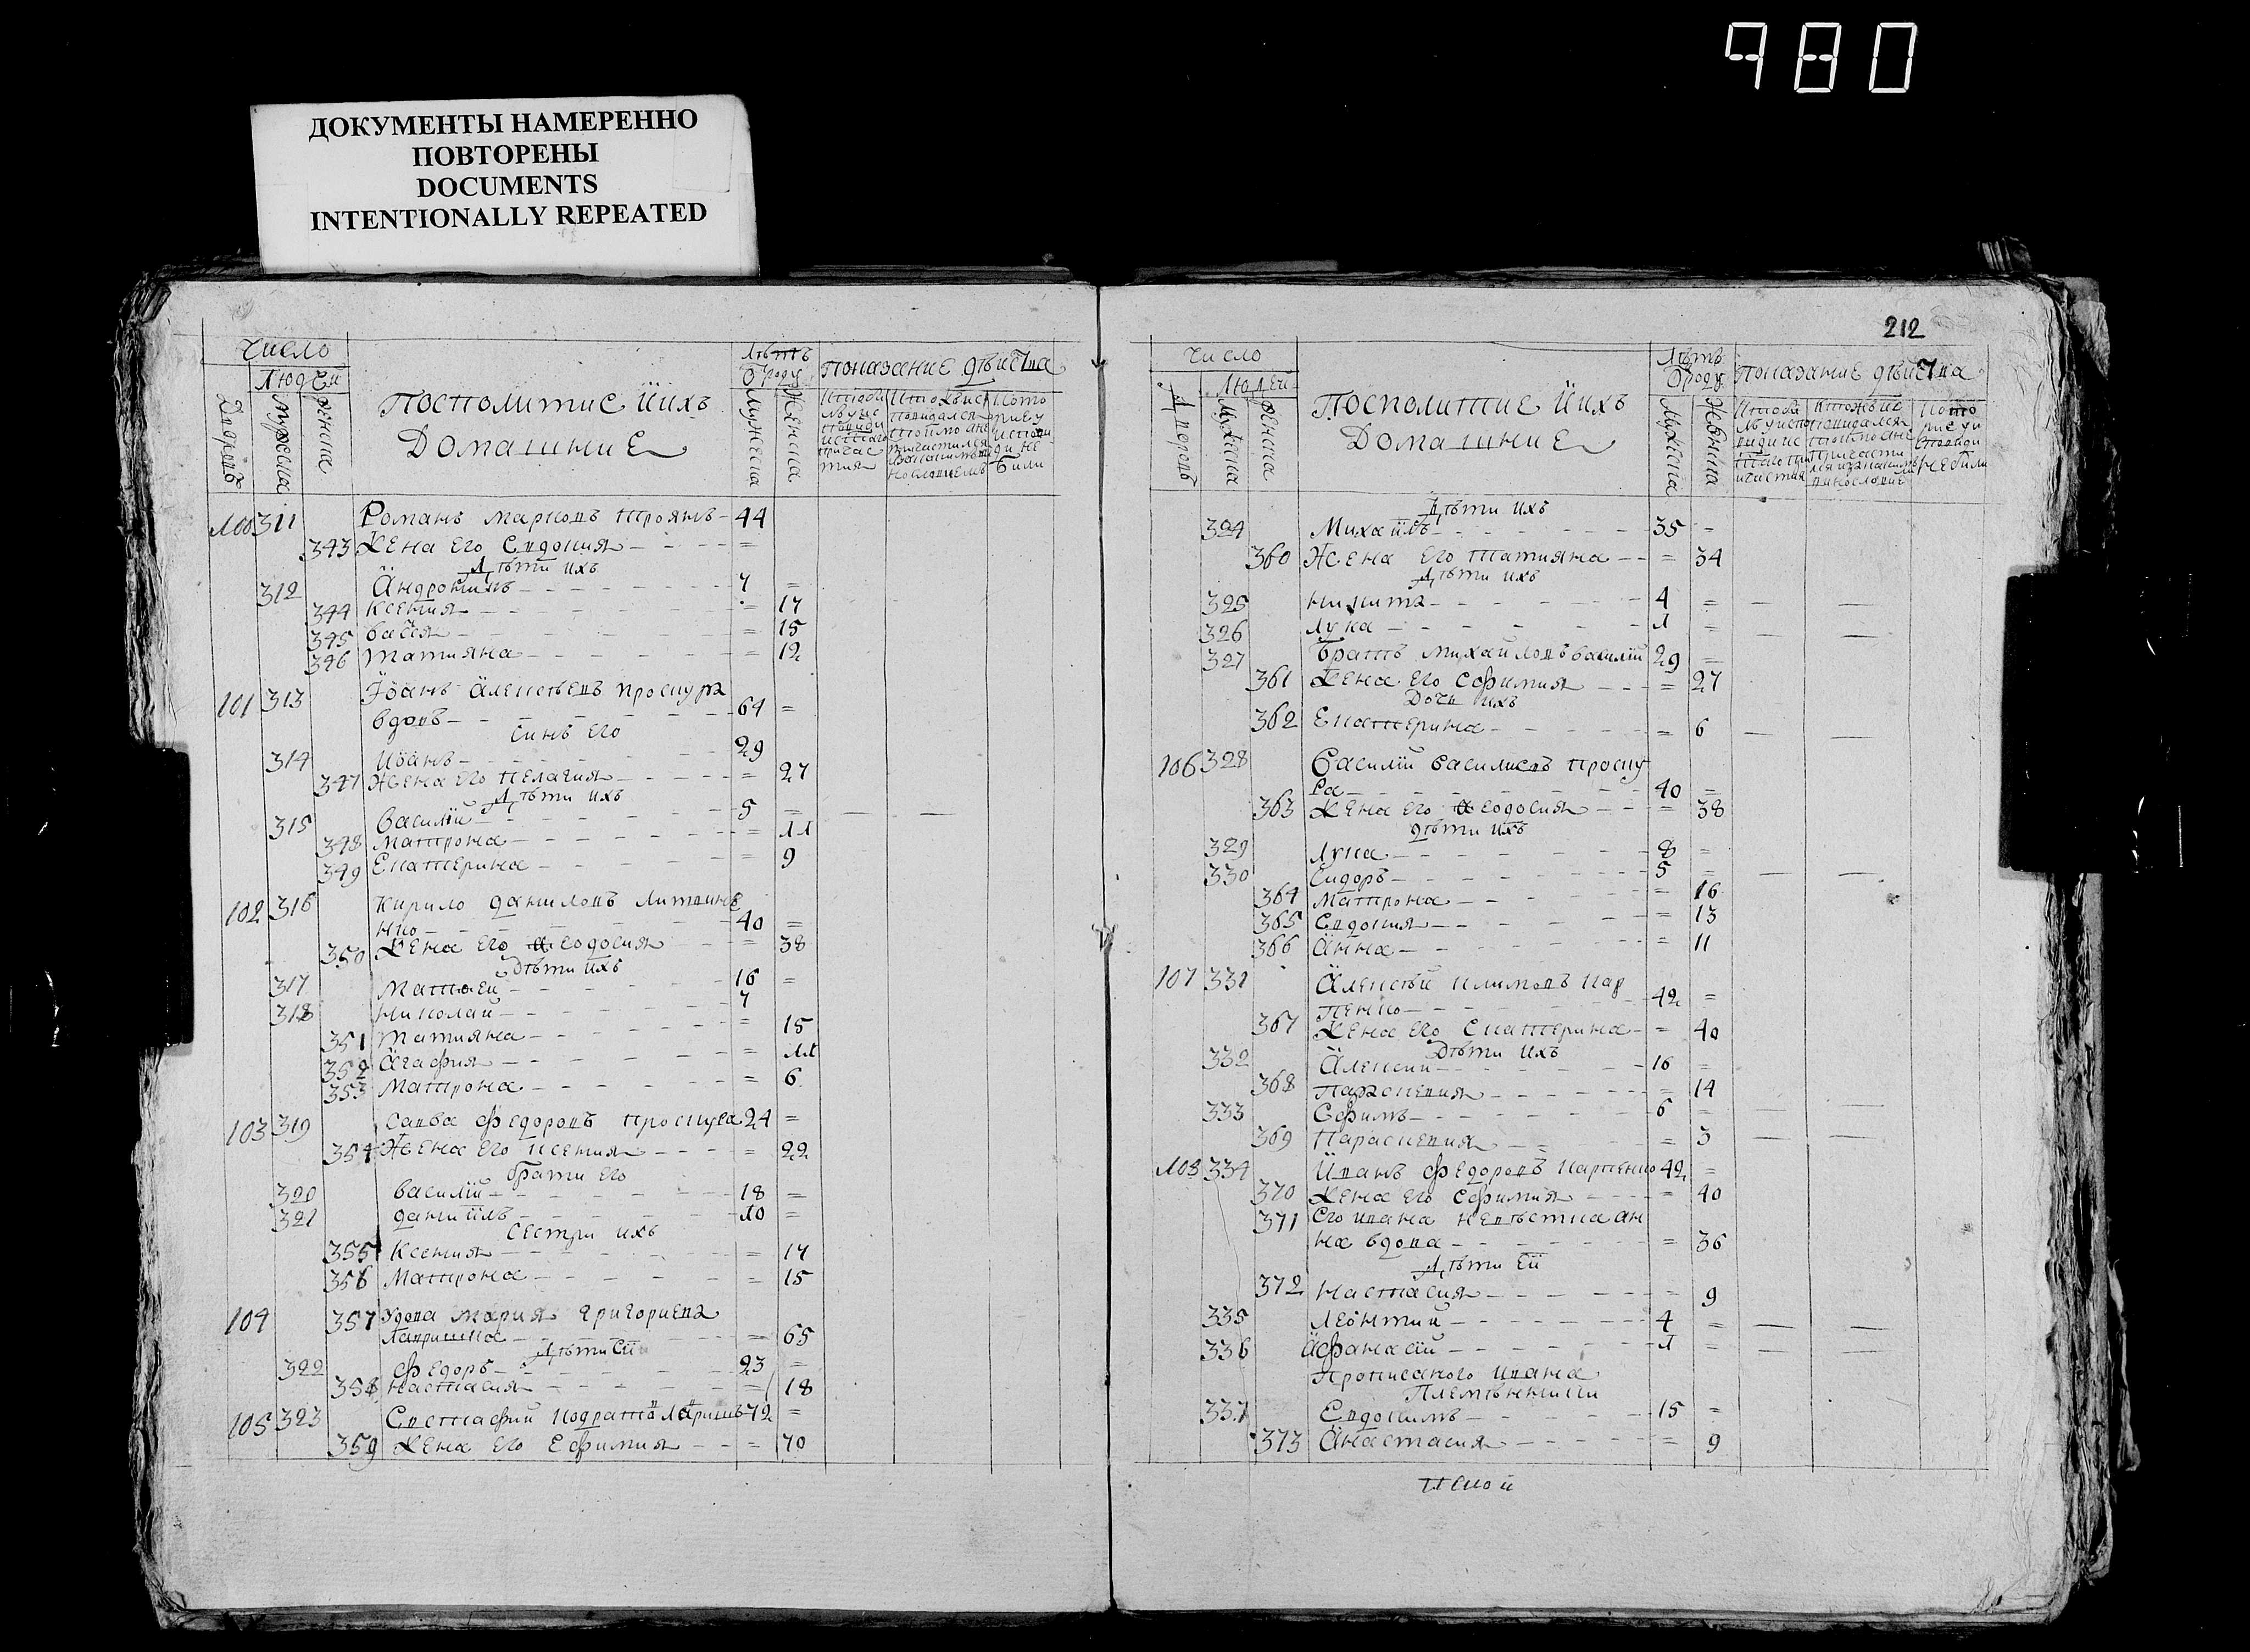 980
ДОКУМЕНТЫ НАМЕРЕННО
ПОВТОРЕНЫ
DOCUMENTS
INTENTIONALLY REPEATED
Число
Людей
Дворовъ
Мужеска
Женска
Посполитие и ихъ
Домашние
Лѣтъ
Ѿ роду
Мужеска
Женска
Показание дѣйства
100 311 Романъ Марковъ Троянъ 44
343 Жена его Евдокия =
Дѣти ихъ
312 Андроникъ 7 =
344 Ксения = 17
345 Васся = 15
346 Татияна = 12
101 313 Іванъ Алексѣевъ Проскура
вдовъ 64 =
Синъ его
314 Иванъ 29
347 Жена его Пелагия = 27
Дѣти ихъ
315 Василий 5 =
348 Матрона = 11
349 Екатерина = 9
102 316 Кирило Даниловъ Литвине
нко 40 =
350 Жена его Ѳеодосия = 38
Дѣти ихъ
317 Матѳей 16 =
318 Николай 7
351 Татияна = 15
352 Агафия = 11
353 Матрона = 6
103 319 Савва Федоровъ Проскура 24 =
354 Жена его Ксения = 22
Брати его
320 Василий 18 =
321 Даниилъ 10 =
Сестри ихъ
355 Ксения = 17
356 Матрона = 15
104 357 Удова Мария Григориева
= 65
Дѣти ей
322 Федоръ 23 =
358 Настасия = 18
105 323 Евстафий 72 =
359 Жена его Ефимия = 70
212
Число
Людей
Дворовъ
Мужеска
Женска
Посполитие и ихъ
Домашние
Лѣтъ
Ѿ роду
Мужеска
Женска
Показание дѣйства
Дѣти ихъ
324 Михаилъ 35 =
360 Жена его Татияна = 34
Дѣти ихъ
325 Никита 4 =
326 Лука 1 =
327 Братъ Михайловъ Василий 29 =
361 Жена его Ефимия = 27
Дочь ихъ
362 Екатерина = 6
106 328 Василий Василиевъ Проску
ра 40 =
363 Жена его Ѳеодосия = 38
Дѣти ихъ
329 Лука 8 =
330 Сидоръ 5 =
364 Матрона = 16
365 Евдокия = 13
366 Анна = 11
107 331 Алексѣй Климовъ Кар
пенко 42 =
367 Жена его Екатерина = 40
Дѣти ихъ
332 Алексий 16 =
368 Параскевия = 14
333 Ефимъ 6 =
369 Параскевия = 3
108 334 Иванъ Федоровъ Карпенко 42 =
370 Жена его Ефимия = 40
371 Его Ивана невѣстка Ан
на вдова = 36
Дѣти ей
372 Настасия = 9
335 Леонтий 4 =
336 Афанасий 1 =
Прописаного Ивана
Племѣнники
337 Евдокимъ 15 =
373 Анастасия = 9